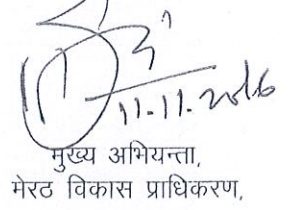 11-11-2016
मुख्य अभियन्ता,
मेरठ विकास प्राधिकरण,